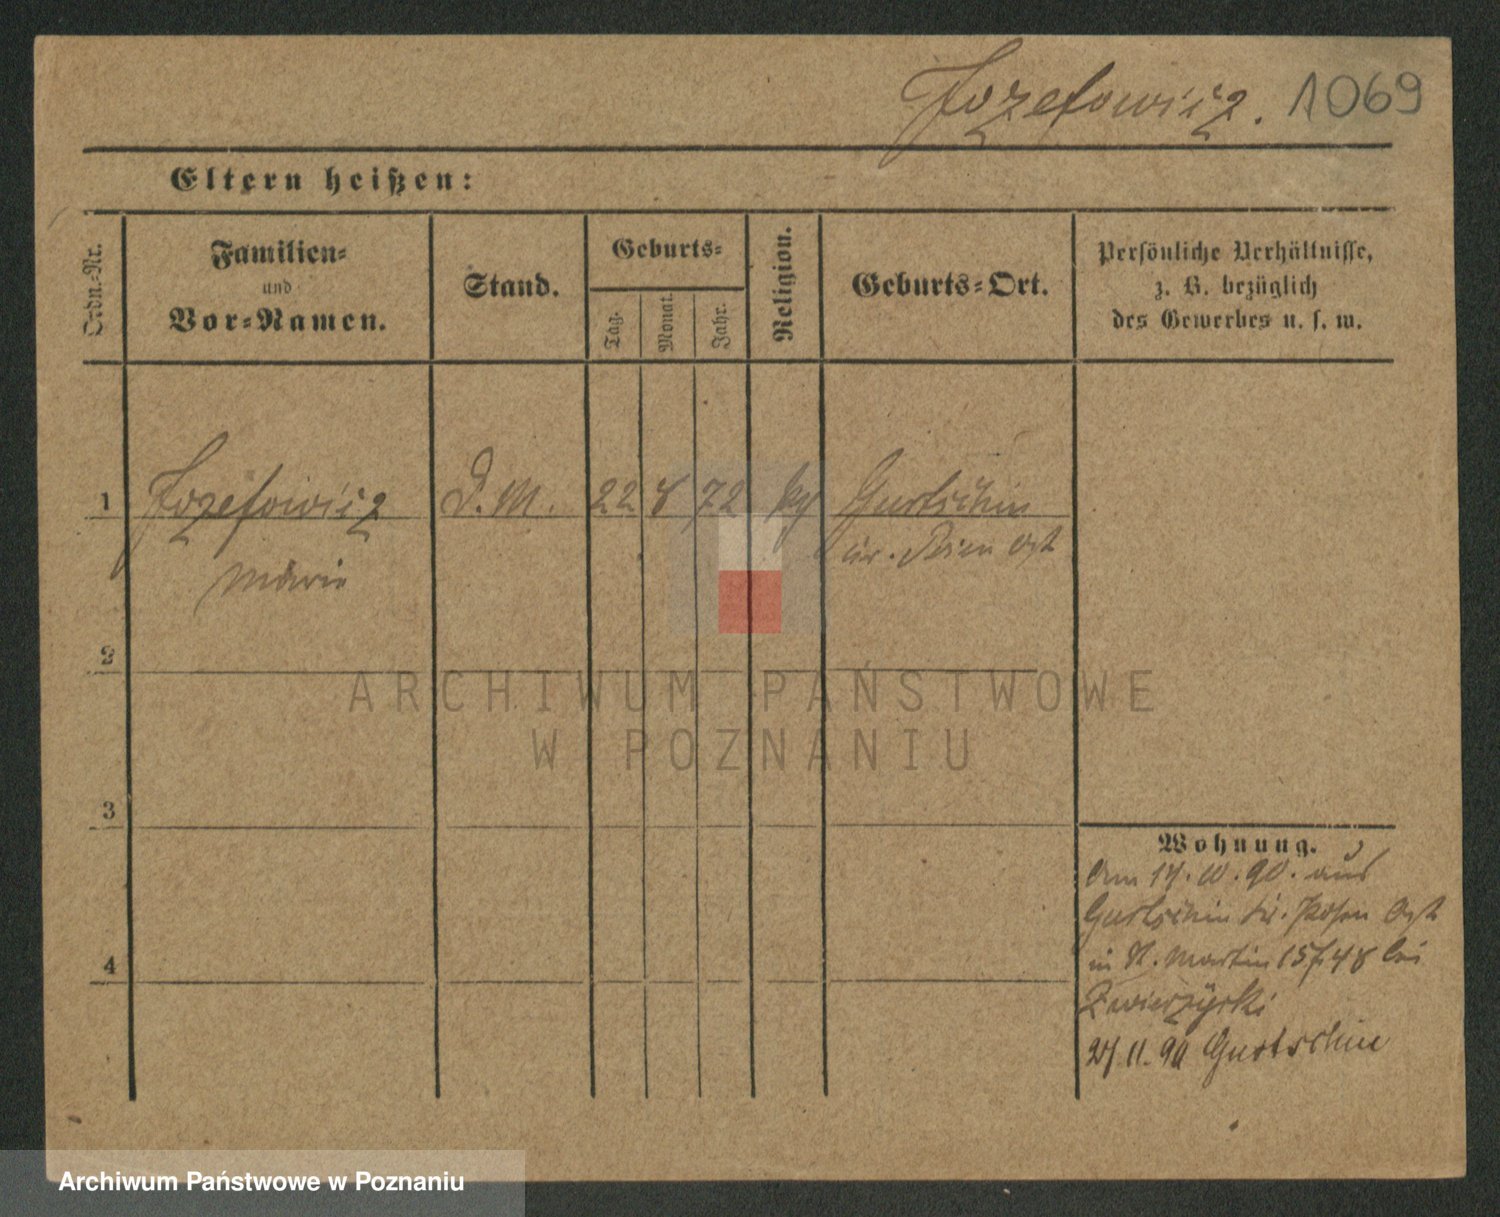 Jozefowicz. 1069
Eltern heißen:
Ordn.-Nr.
Familien-
und
Vor-Namen.
Stand.
Geburts-
Tag.
Monat.
Jahr.
Religion.
Geburts-Ort.
Persönliche Verhältnisse,
z. B. bezüglich
des Gewerbes u. s. w.
1 Jozefowicz D. M. 22 8 72 Gurtschin
Marie
2
3
4
Wohnung.
Am 17. 10. 90. aus
Gurtschin Kr. Posen Ost
in St. Martin 157/48 bei
Zwierzyski
27/11. 90 Gurtschin
ARCHIWUM PAŃSTWOWE
W POZNANIU
Archiwum Państwowe w Poznaniu